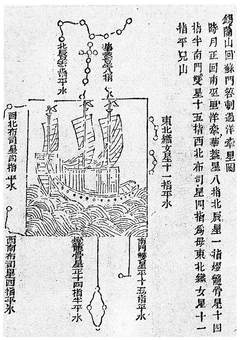 錫蘭山回蘇門答剌過洋牽星圖
時月正回南巫里洋牽華蓋星八指北辰星一指燈籠骨星十四
指半南門雙星十五指西北布司星四指為母東北織女星十一
指平兒山
東北織女星十一指平水
華蓋星八指平水
北辰星一指平水
西北布司星四指平水
南門雙星平十五指平水
燈籠骨星正十四指半平水
西南布司星四指平水